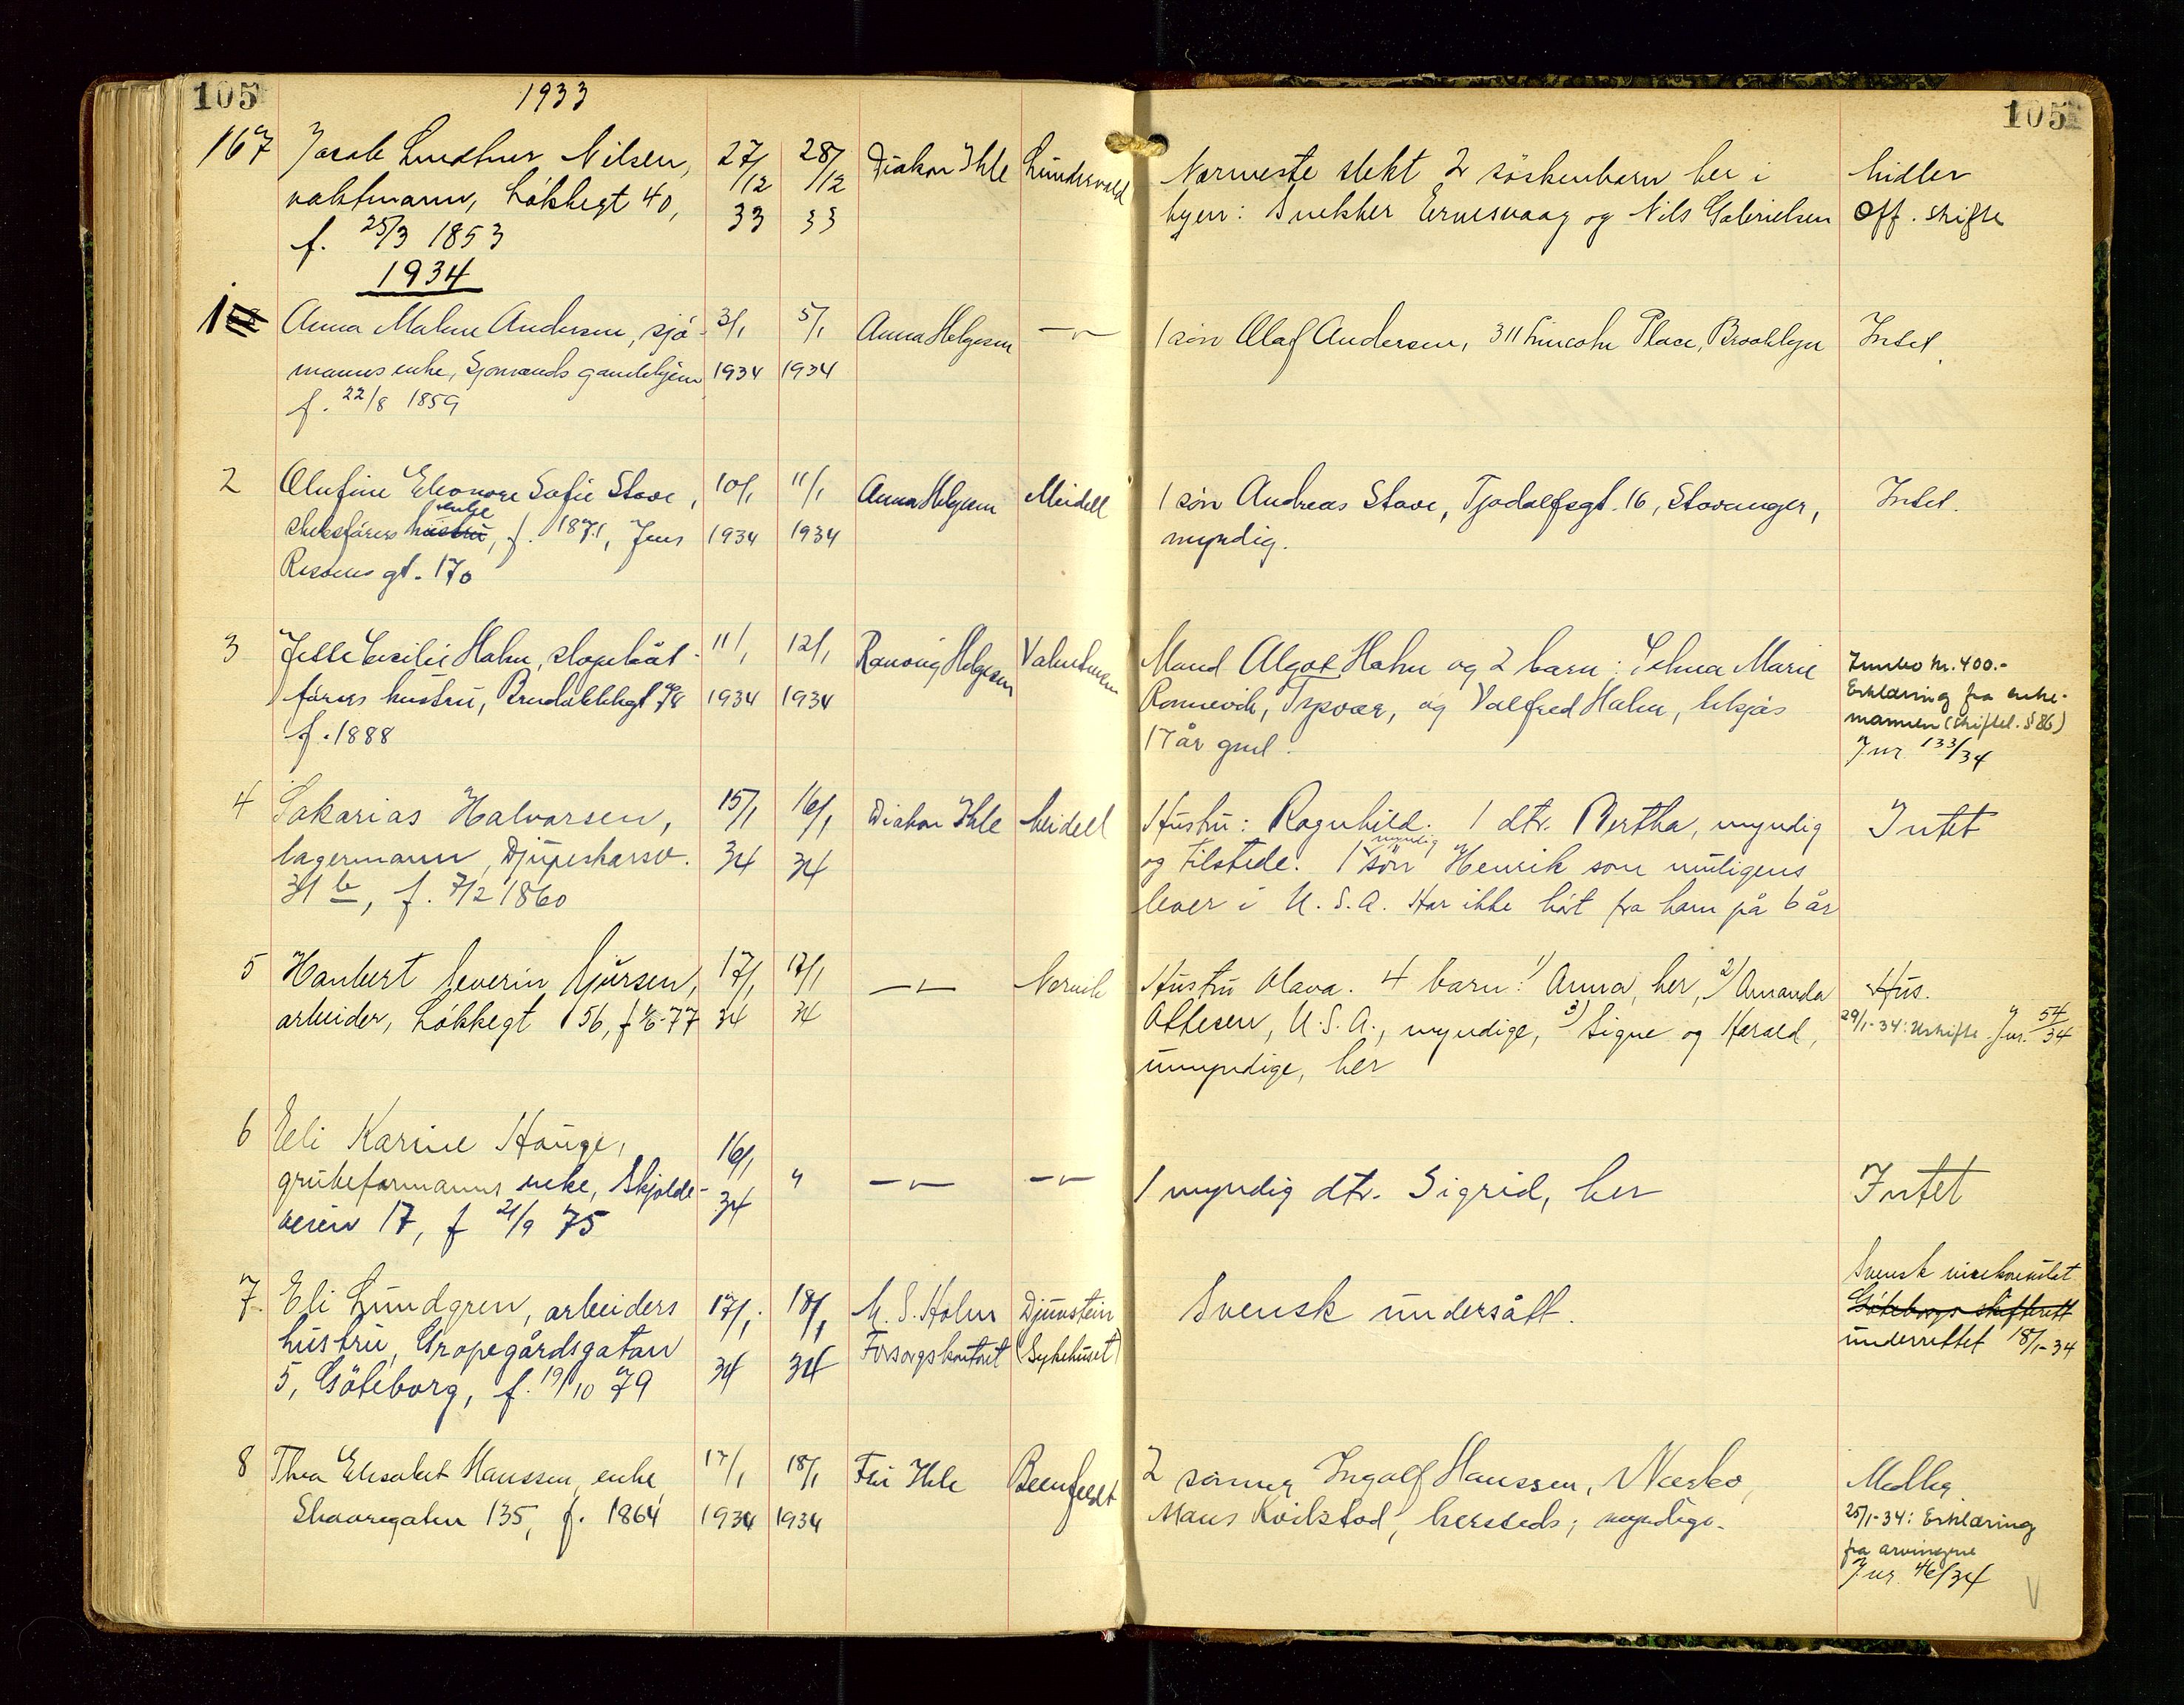 105
1933
105
167 Jacob Nilsen, 27/12 33 28/12 33 Diakon Ihle Lundsvold
vaktmann, Løkkegt 40,
f. 25/3 1853
Nærmeste slekt 2 søskenbarn her i
byen: Snekker Ervesvaag og Nils Gabrielsen
Midler
Off. skifte
1934
1 Anna Malene Andersen, sjø- 3/1 5/1 Anna Helgesen —"—
manns enke, Sjømands gamlehjem 1934 1934
f. 22/8 1859
1 søn Olaf Andersen, 311 Lincoln Place, Brooklyn
Intet.
2 Olufine Eleonore Sofie Stave, 10/1 11/1 Anna Helgesen Meidell
enke
hustru, f. 1871, Jens 1934 1934
gt. 170
1 søn Andreas Stave, Tjodolfsgt. 16, Stavanger,
myndig.
Intet.
3 Cecilie Hahn, 11/1 12/1 Ranveig Helgesen
førers hustru, 78 1934 1934
f. 1888
Mand Algot Hahn og 2 barn: Selma Marie
Rønnevik, Tysvær, og Valfred Hahn,
17 år gml.
Innbo kr. 400.-
Erklæring fra enke-
mannen (skiftel. § 86)
Jnr. 133/34
4 Sakarias Halvorsen, 15/1 16/1 Diakon Ihle Meidell
lagermann, Djupeskarsv. 34 34
31 b, f. 7/2 1860
Hustru: Ragnhild. 1 dtr. Bertha, myndig
myndig
og tilstede. 1 søn Henrik som muligens
lever i U.S.A. Har ikke hørt fra ham på 6 år
Intet
5 Hanbert Severin Sjursen, 17/1 17/1 —"— Norvik
arbeider, Løkkegt 56, 77 34 34
Hustru Olava. 4 barn: 1) Anna, her, 2) Amanda
Ottesen, U.S.A., myndige, 3) Signe og Harald,
umyndige, her
Hus.
29/1-34: Uskifte. Jnr. 54/34
6 Eli Karine Hauge, 16/1
grubeformanns enke, Skjolde- 34 " —"— —"—
veien 17, f 21/9 75
1 myndig dtr. Sigrid, her
Intet
7. Eli Lundgren, arbeiders 17/1. 18/1 M. S. Holm Djuvstein
hustru, Gropegårdsgatan 34 34 Forsorgskontoret (Sykehuset)
5, Göteborg, f. 19/10 79
Svensk undersått.
Svensk visekonsulat
Göteborgs skifterett
underrettet 18/1-34
8 Thea Elisabet Hanssen, enke 17/1 18/1 Fru Ihle Beenfeldt
Skaaregaten 135, f. 1864 1934 1934
2 sønner Ingolf Hanssen, Næsbø,
Maus Kvilstad, hersteds; myndige.
Midler
25/1-34: Erklæring
fra arvingene
Jnr. 46/34